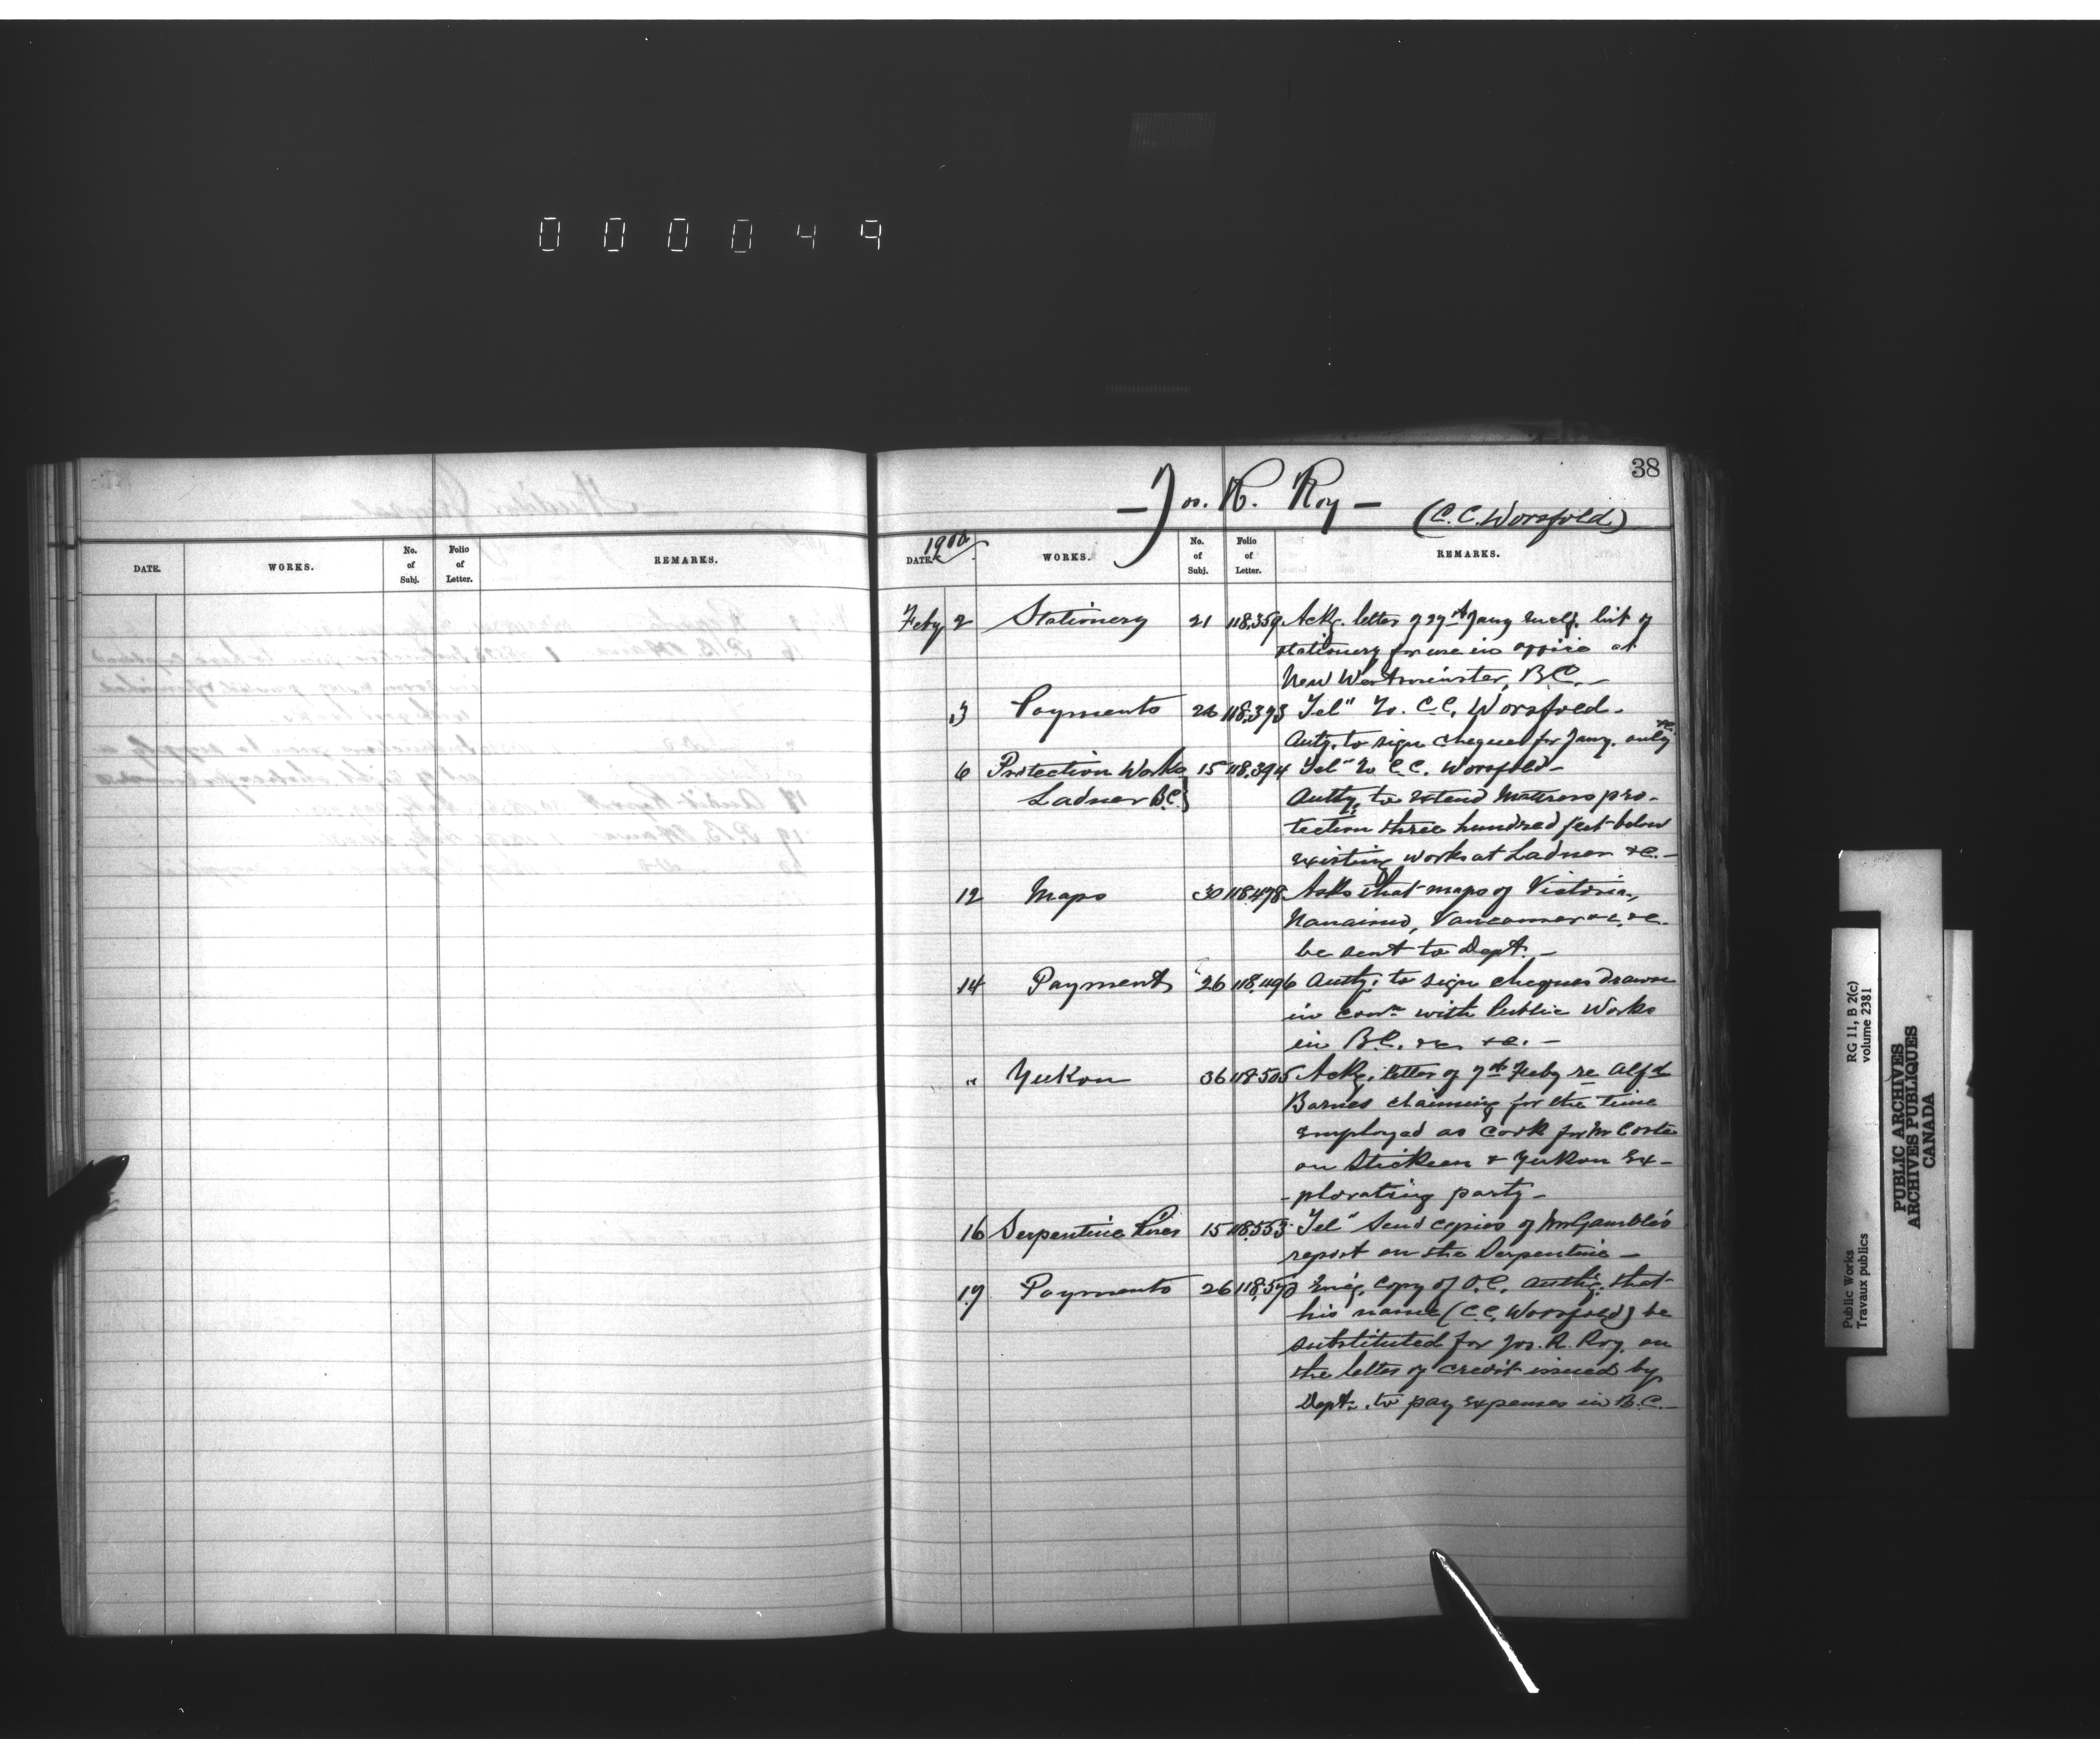 0 0 0 0 4 9
38
— Jos. R. Roy —
(C. C. Worsfold)
DATE.
WORKS.
No. of Subj.
Folio of Letter.
REMARKS.
1900
DATE.
WORKS.
No. of Subj.
Folio of Letter.
REMARKS.
Feby 2 Stationery 21 118,359 Ackg. letter of 27th Jany enclg. list of
stationery for use in office at
New Westminster, B.C. —
" Payments 26 118,393 Tel" to C.C. Worsfold.
Auty. to sign cheques for Jany. only
6 Protection Works 15 118,394 Tel" to C.C. Worsfold —
Ladner B.C. } Authy. to extend mattress pro-
tection three hundred feet below
existing works at Ladner &c. —
12 Maps 30 118,478 Asks that maps of Victoria,
Nanaimo, Vancouver &c. &c.
be sent to Dept. —
14 Payments 26 118,496 Authy. to sign cheques drawn
in conn. with Public Works
in B.C. &c. &c. —
" Yukon 36 118,505 Ackg. letter of 7th Feby re Alfd
Barnes claiming for the time
employed as cook for Mr Coste
on Stickeen & Yukon Ex-
-plorating party —
16 Serpentine River 15 118,553 Tel" Send copies of Mr Gamble's
report on the Serpentine —
19 Payments 26 118,570 Encg. copy of O.C. authg. that
his name (C.C. Worsfold) be
substituted for Jos. R. Roy, on
the letter of credit issued by
Dept. to pay expenses in B.C. —
Public Works
Travaux publics
RG 11, B 2(c)
volume 2381
PUBLIC ARCHIVES
ARCHIVES PUBLIQUES
CANADA